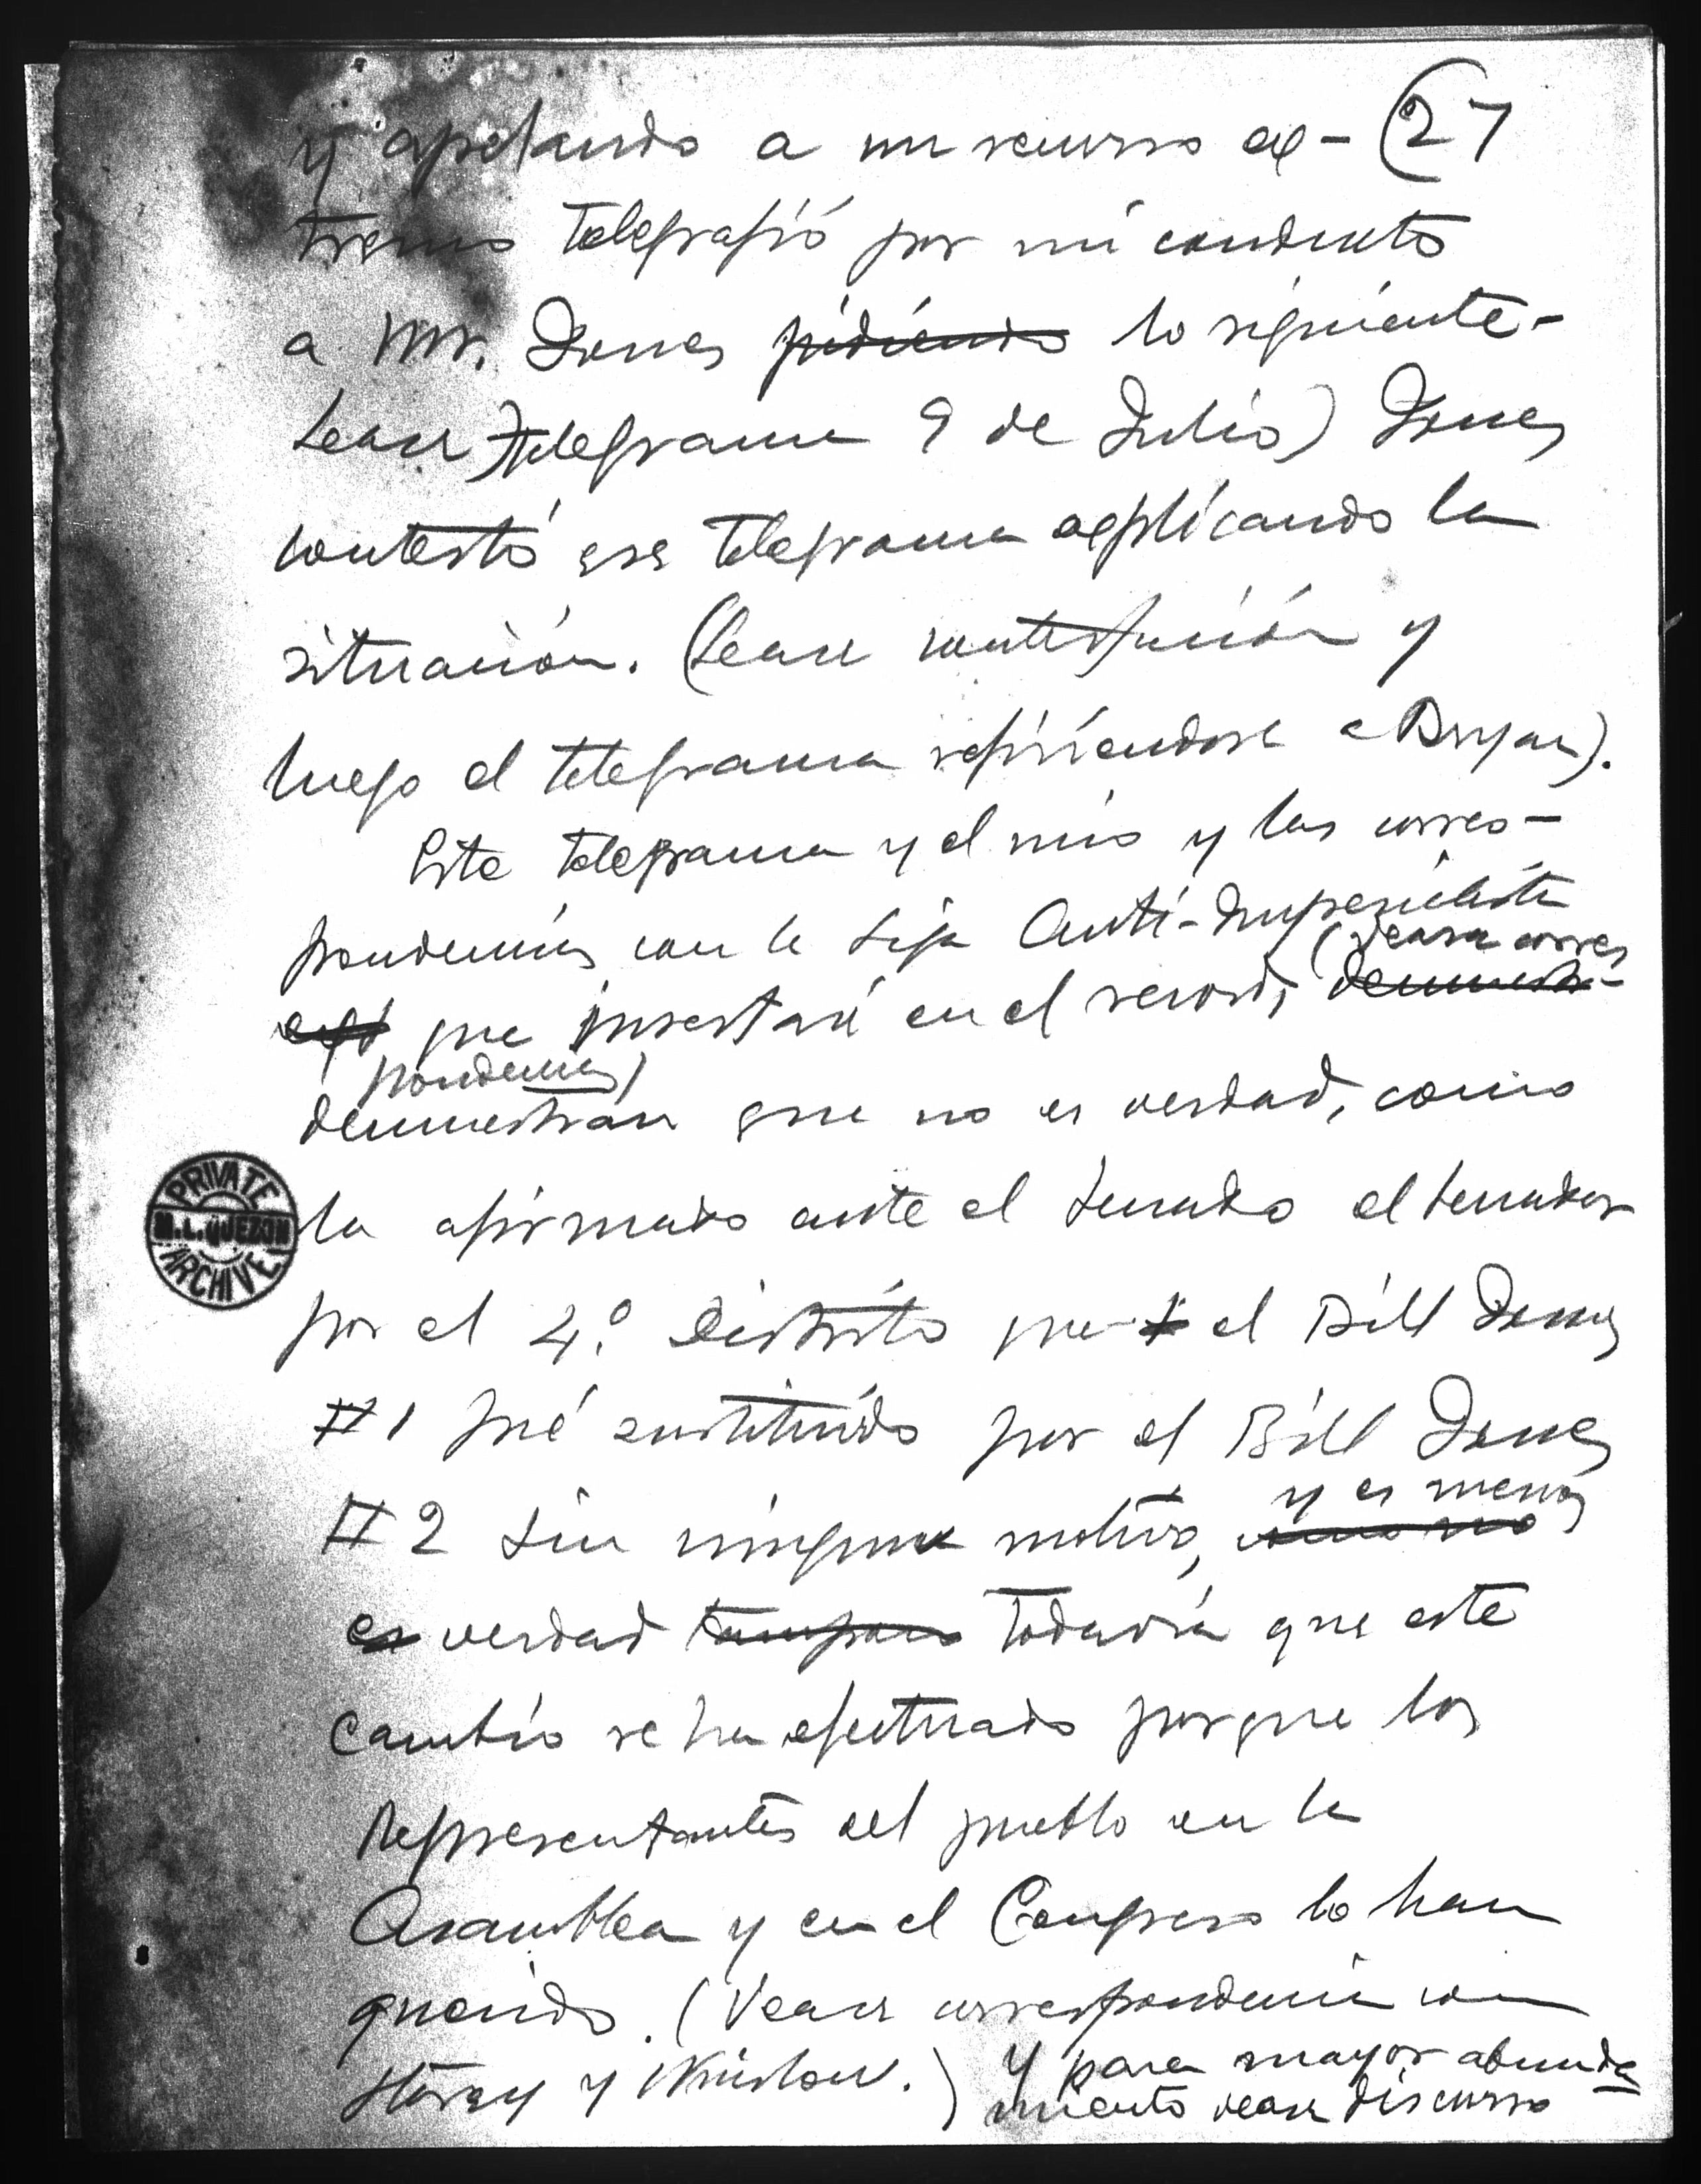 27
y apelando a un recurso ex-
tremo telegrafió por mi conducto
a Mr. Jones pidiendo lo siguiente-
Lease) telegrama 9 de Julio) Jones
contestó ese telegrama explicando la
situación. (Lease contestación y
luego el telegrama refiriendose a Bryan).
Este telegrama y el mio y las corres-
pondencias con la Liga Anti-Imperialista
(vease corres
que insertaré en el record, demuestra-
pondencias)
demuestran que no es verdad, como
ha afirmado ante el Senado el senador
por el 4.º Distrito que el Bill Jones
#1 fué sustituido por el Bill Jones
y es menos
#2 sin ningun motivo, como no
es verdad tampoco todavía que este
cambio se ha efectuado porque los
Representantes del pueblo en la
Asamblea y en el Congreso lo han
querido. (Vease correspondencia con
Storey y Winslow.)
y para mayor abunda
miento vease discurso
PRIVATE
M.L. QUEZON
ARCHIVE